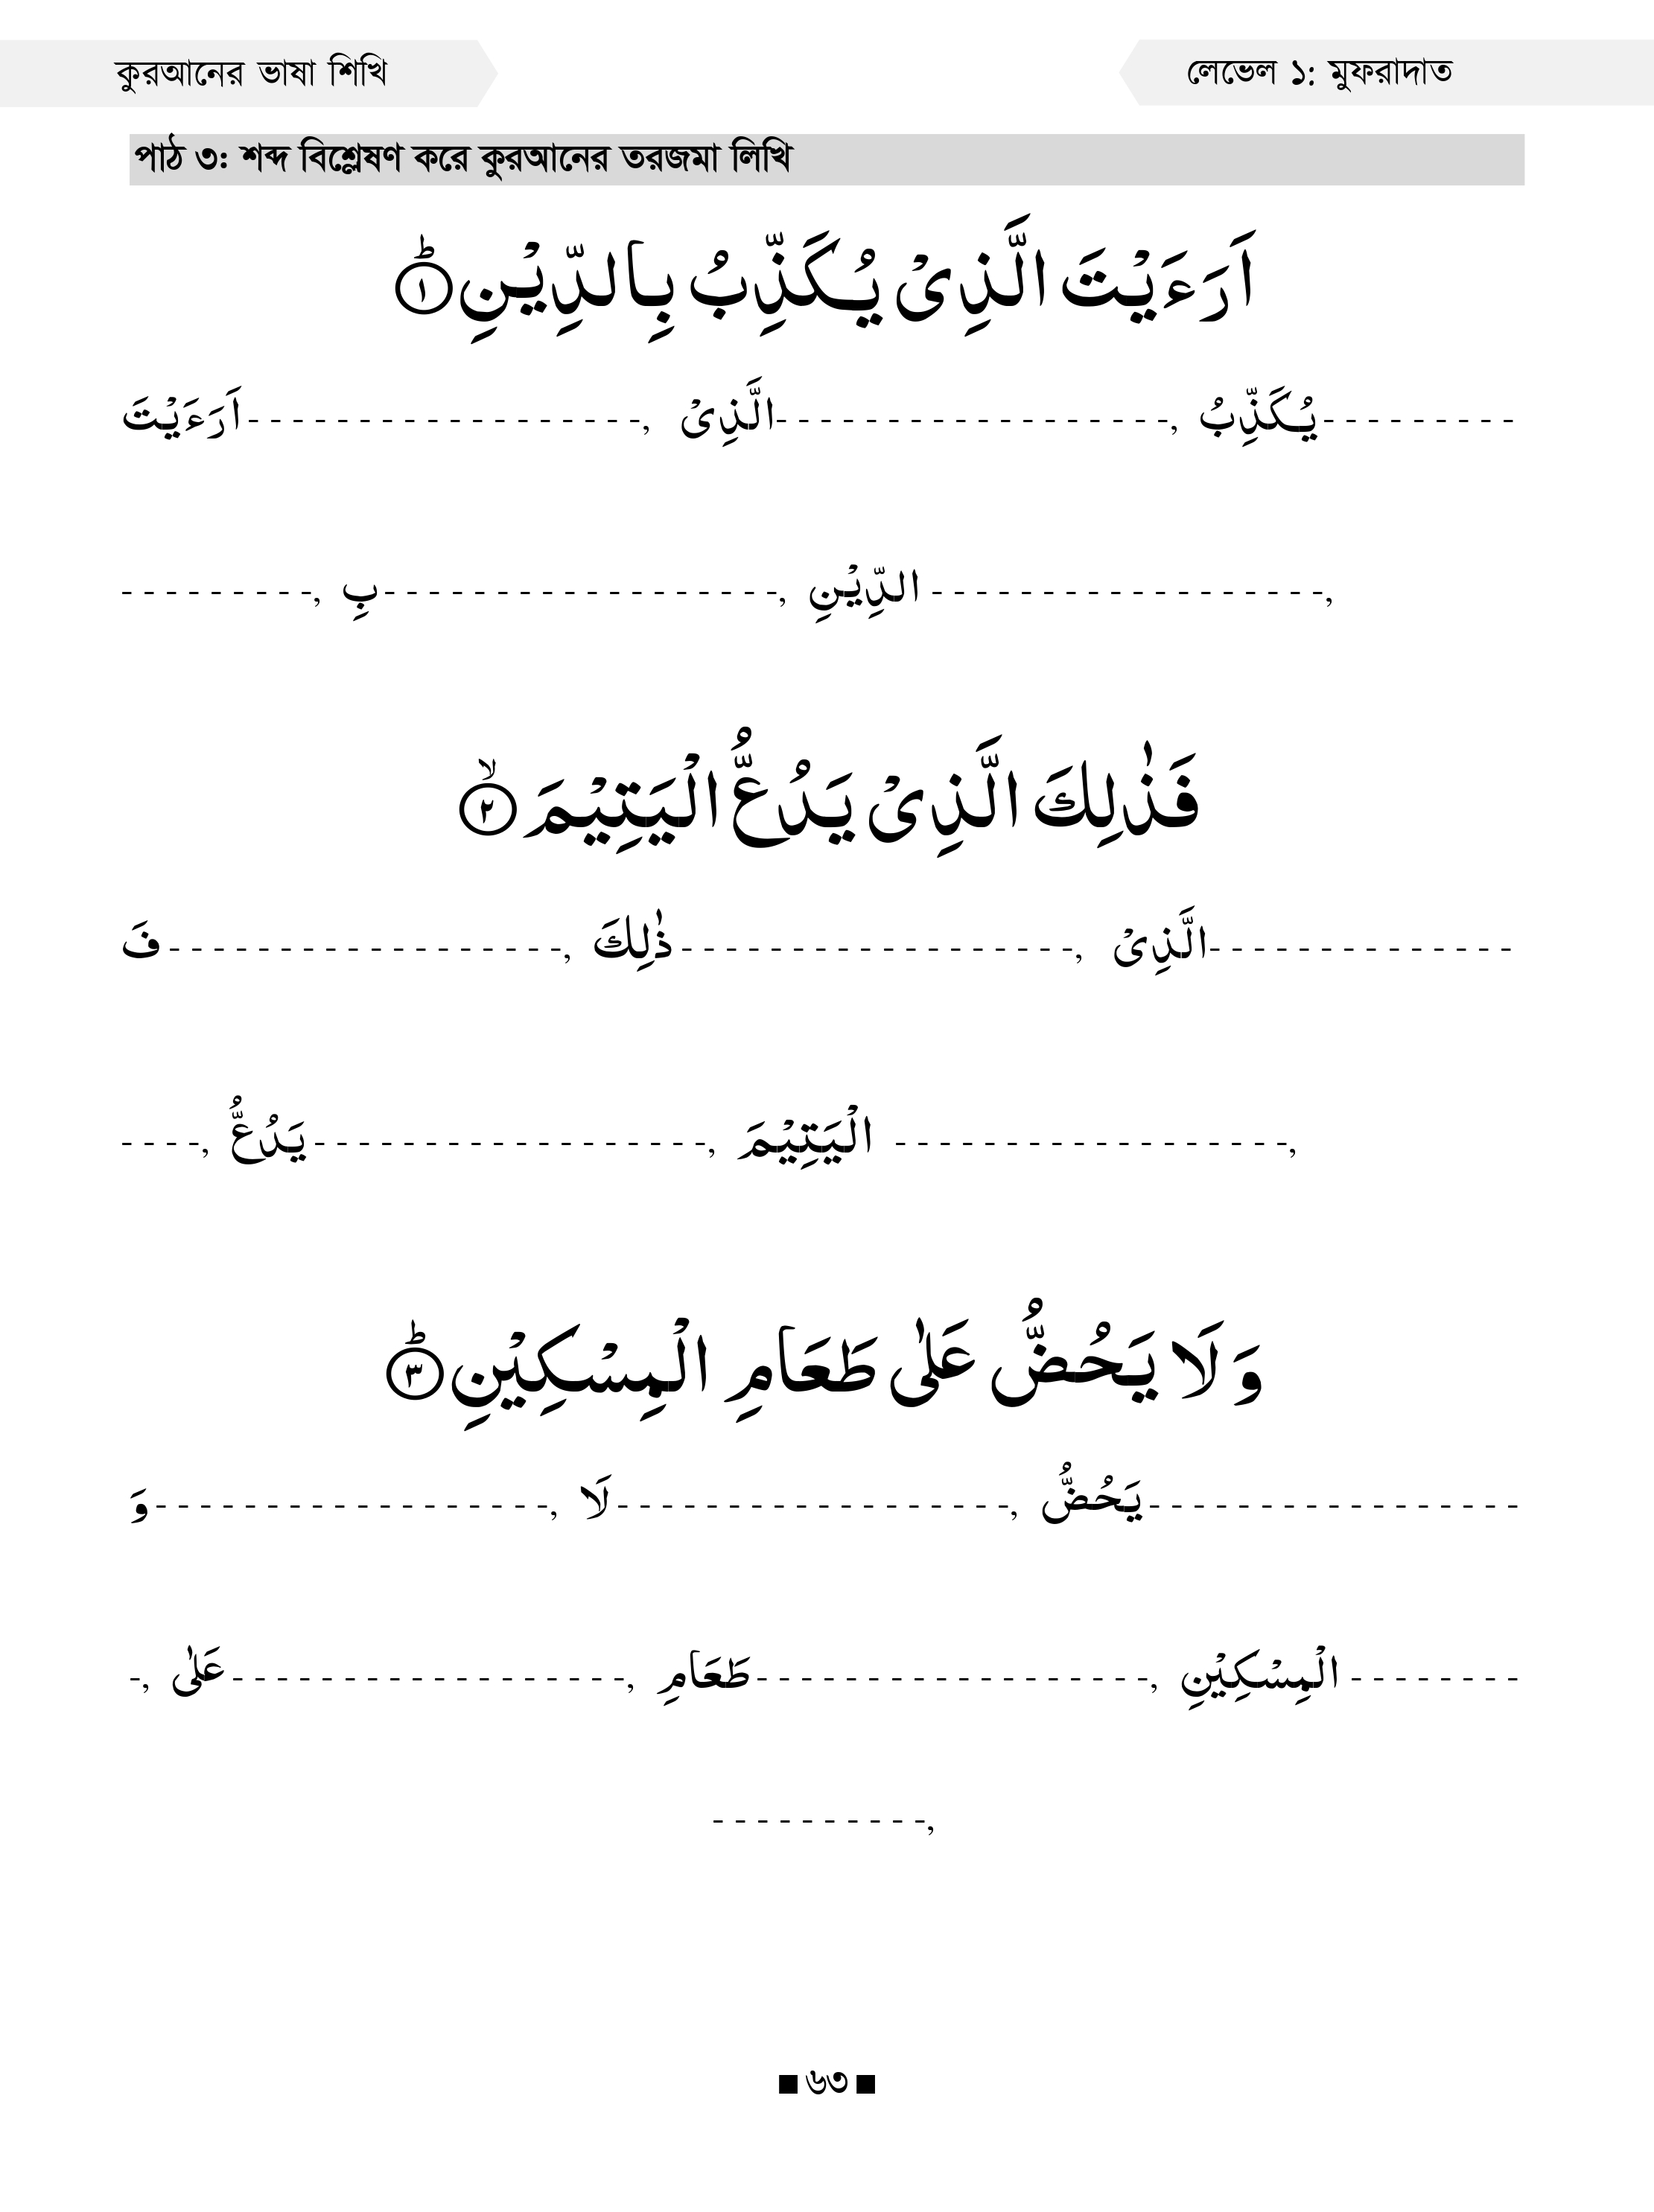 কুরআনের ভাষা শিখি
লেভেল ১: মুফরাদাত
পাঠ ৩: শব্দ বিশ্লেষণ করে কুরআনের তরজমা লিখি
اَرَءَيْتَ الَّذِىْ يُكَذِّبُ بِالدِّيْنِ ؕ ١
اَرَءَيْتَ - - - - - - - - - - - - - - - - - -, الَّذِىْ - - - - - - - - - - - - - - - - - -, يُكَذِّبُ - - - - - - - - -
- - - - - - - - -, بِ - - - - - - - - - - - - - - - - - -, الدِّيْنِ - - - - - - - - - - - - - - - - - -,
فَذٰلِكَ الَّذِىْ يَدُعُّ الْيَتِيْمَ ۙ ٢
فَ - - - - - - - - - - - - - - - - - -, ذٰلِكَ - - - - - - - - - - - - - - - - - -, الَّذِىْ - - - - - - - - - - - - - -
- - - -, يَدُعُّ - - - - - - - - - - - - - - - - - -, الْيَتِيْمَ - - - - - - - - - - - - - - - - - -,
وَ لَا يَحُضُّ عَلٰى طَعَامِ الْمِسْكِيْنِ ؕ ٣
وَ - - - - - - - - - - - - - - - - - -, لَا - - - - - - - - - - - - - - - - - -, يَحُضُّ - - - - - - - - - - - - - - - - -
-, عَلٰى - - - - - - - - - - - - - - - - - -, طَعَامِ - - - - - - - - - - - - - - - - - -, الْمِسْكِيْنِ - - - - - - - -
- - - - - - - - - -,
■ ৬৩ ■